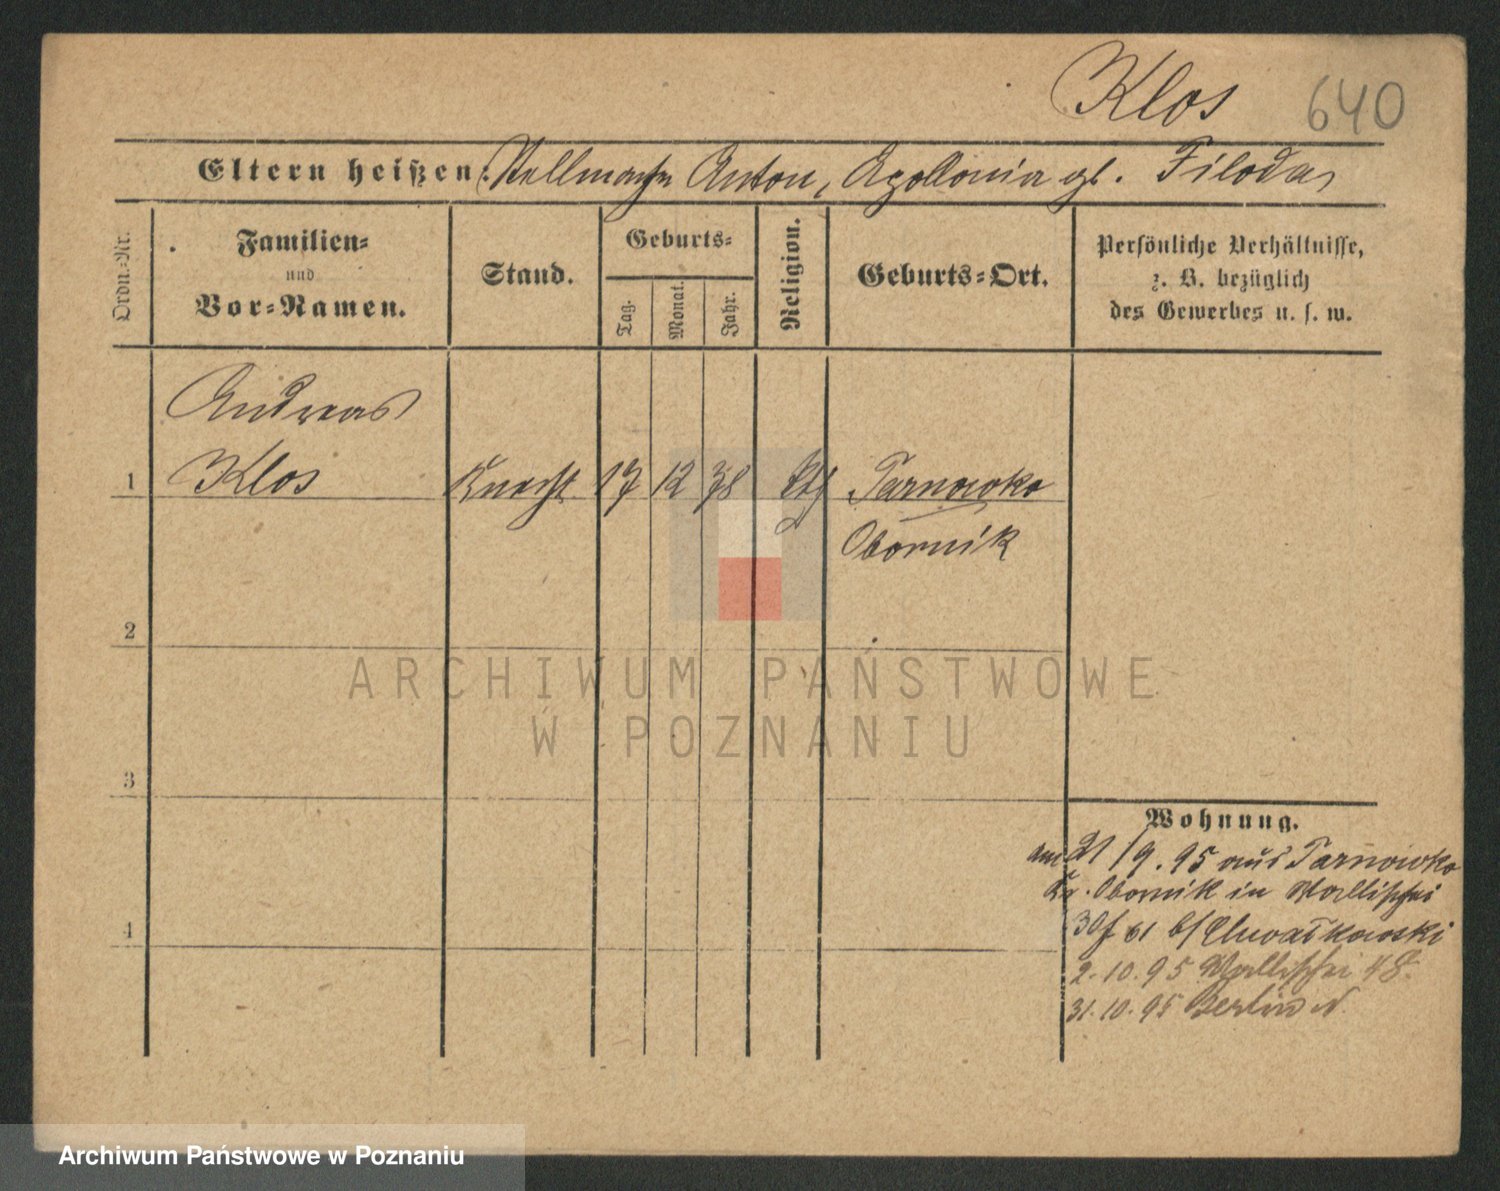 Klos 640
Eltern heißen: Stellmacher Anton, Apollonia gb. Filoda
Ordn.-Nr.
Familien-
und
Vor-Namen.
Stand.
Geburts-
Tag.
Monat.
Jahr.
Religion.
Geburts-Ort.
Persönliche Verhältnisse,
z. B. bezüglich
des Gewerbes u. s. w.
Andreas
1 Klos Knecht 17 12 78 kth Tarnowko
Obornik
2
3
4
Wohnung.
am 21/9.95 aus Tarnowko
Kr. Obornik in Wallischei
b/
2.10.95 Wallischei 48.
31.10.95 Berlin
ARCHIWUM PAŃSTWOWE
W POZNANIU
Archiwum Państwowe w Poznaniu